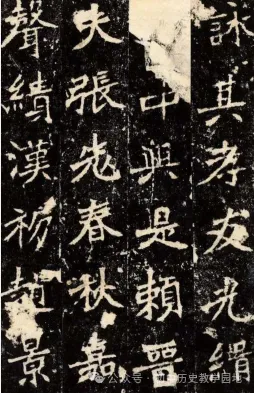 詠其孝友光緝
中興是賴晉
夫張老春秋嘉
聲績漢初趙景
公众号 · 历史教学园地